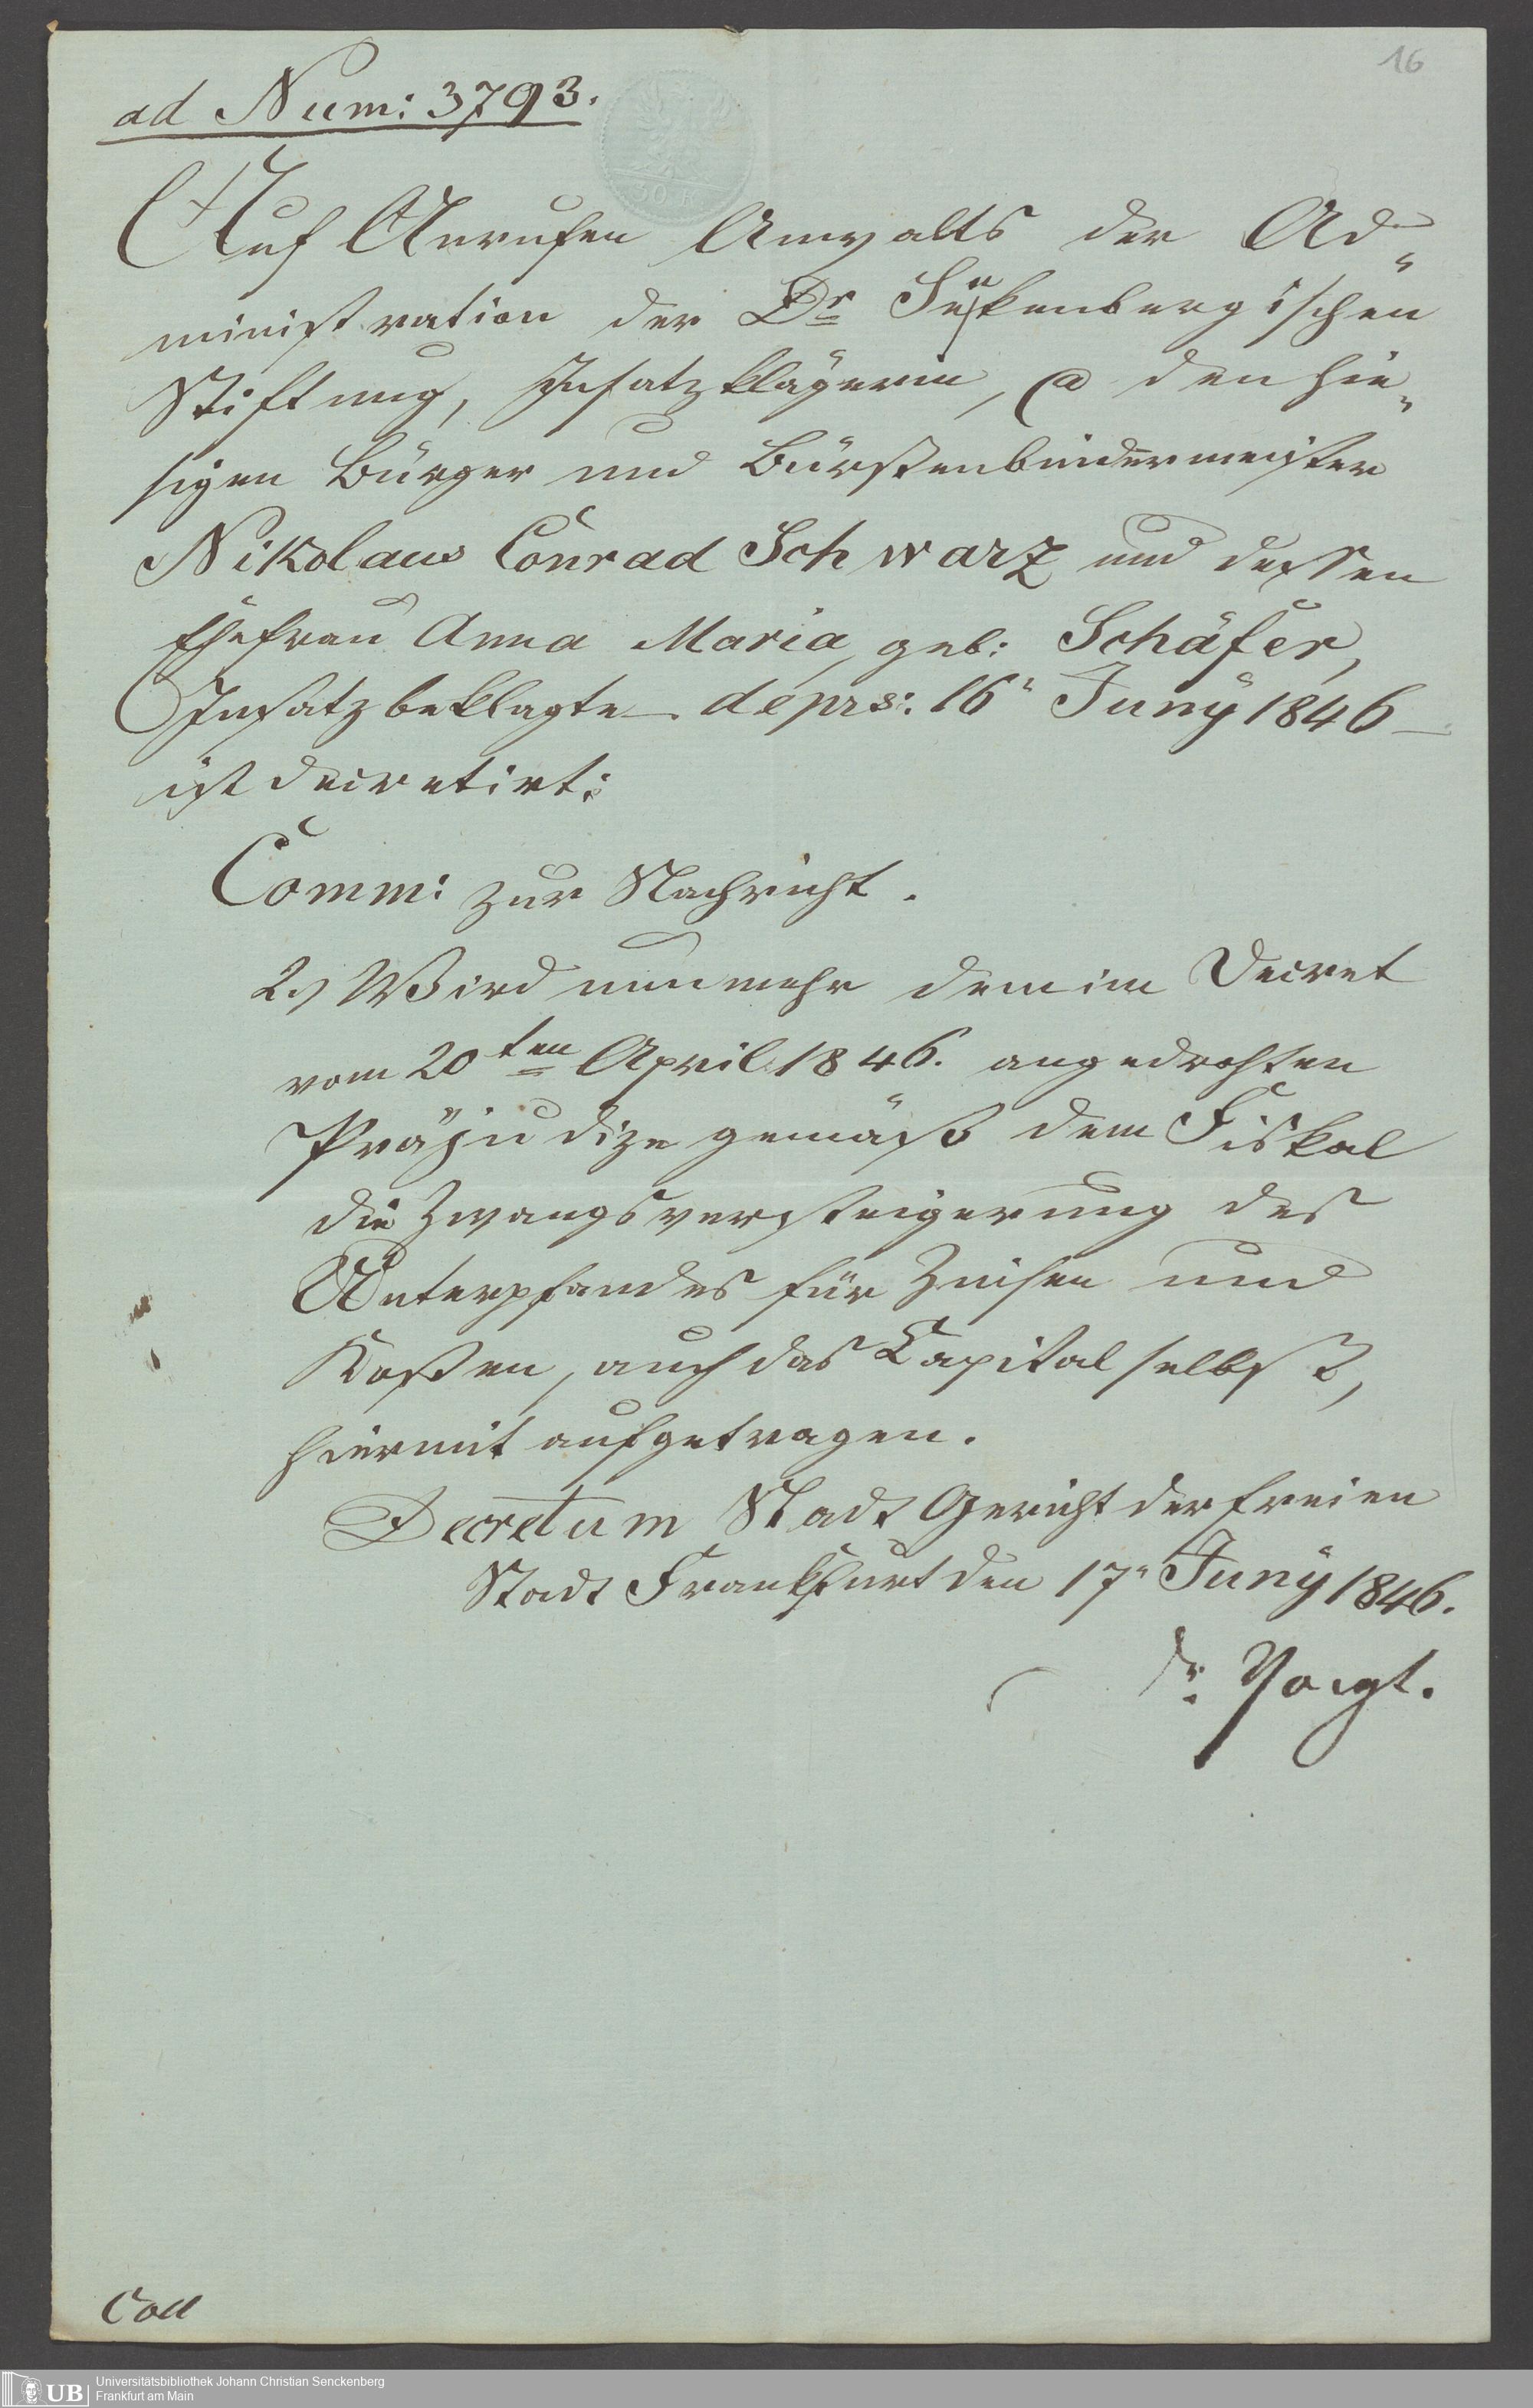 16
ad Num: 3793.
Auf Anrufen Anwalts der Ad-
ministration der Dr Senkenbergischen
Stiftung, Insatzklägerin, ca den hie-
sigen Bürger und Bürstenbindermeister
Nikolaus Conrad Schwarz und dessen
Ehefrau Anna Maria, geb: Schäfer,
Insatzbeklagte de prs: 16" Juny 1846 –
ist decretirt:
Comm: zur Nachricht.
2.) Wird nunmehr dem im Decret
vom 20ten April 1846. angedrohten
Präjudize gemäß dem Fiskal
die Zwangsversteigerung des
Unterpfandes für Zinsen und
Kosten, auch das Capital selbst,
hiermit aufgetragen.
Decretum Stadt Gericht der freien
Stadt Frankfurt den 17" Juny 1846.
Dr. Voigt.
Coll
UB
Universitätsbibliothek Johann Christian Senckenberg
Frankfurt am Main